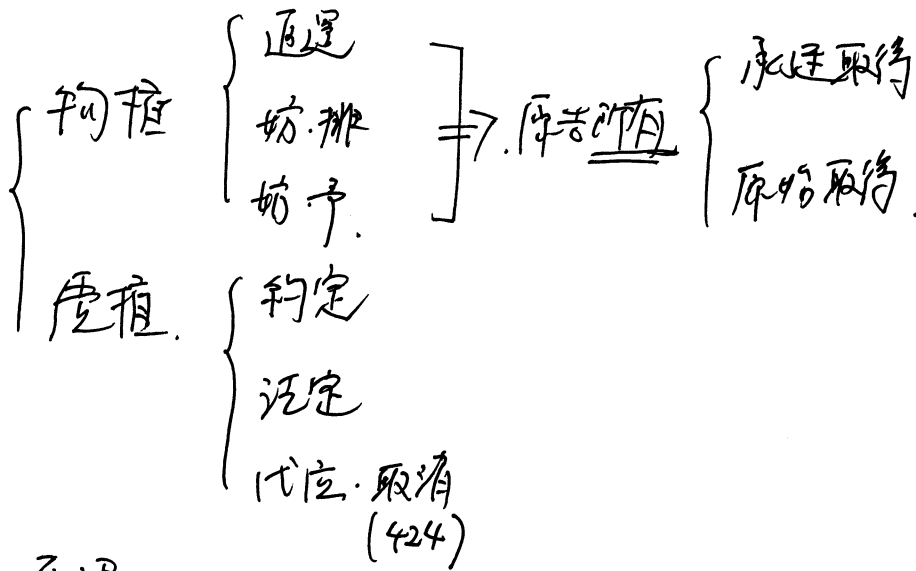 物権
返還
妨・排
妨・予.
⇒.原告所有
承継取得
原始取得.
債権.
約定
法定
代位・取消
(424)